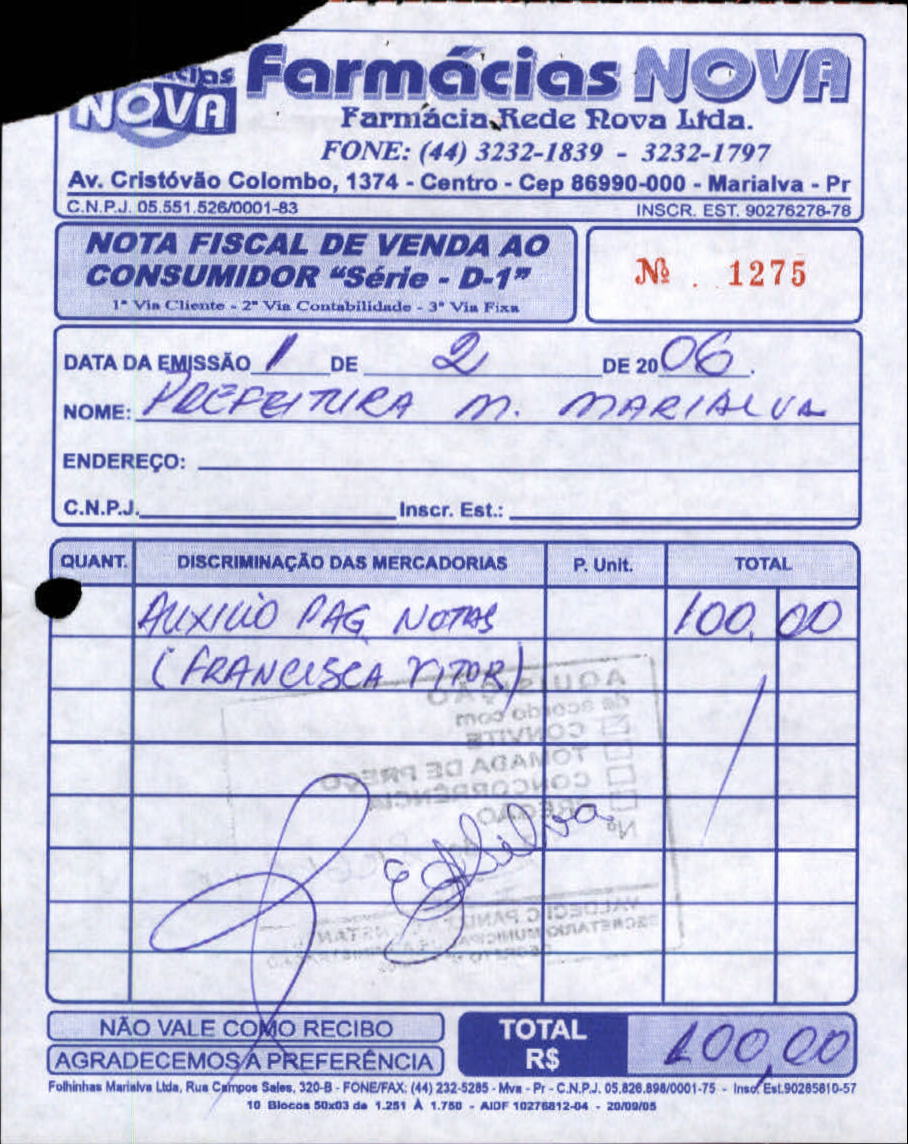 NOVA
Farmácias NOVA
Farmácia Rede Nova Ltda.
FONE: (44) 3232-1839 - 3232-1797
Av. Cristóvão Colombo, 1374 - Centro - Cep 86990-000 - Marialva - Pr
C.N.P.J. 05.551.526/0001-83 INSCR. EST. 90276278-78
NOTA FISCAL DE VENDA AO
CONSUMIDOR "Série - D-1"
1ª Via Cliente - 2ª Via Contabilidade - 3ª Via Fixa
Nº. 1275
DATA DA EMISSÃO 1 DE 2 DE 2006.
NOME: PREFEITURA M. MARIALVA
ENDEREÇO:
C.N.P.J. Inscr. Est.:
QUANT. DISCRIMINAÇÃO DAS MERCADORIAS P. Unit. TOTAL
AUXILIO PAG NOTAS 100,00
(FRANCISCA VITOR)
AQUISIÇÃO
de acordo com
CONVITE
TOMADA DE PREÇO
CONCORRÊNCIA
PREGÃO
Nº
SECRETARIO MUNICIPAL
NÃO VALE COMO RECIBO
AGRADECEMOS A PREFERÊNCIA
TOTAL
R$ 100,00
Folhinhas Marialva Ltda, Rua Campos Sales, 320-B - FONE/FAX: (44) 232-5285 - Mva - Pr - C.N.P.J. 05.826.898/0001-75 - Insc. Est.90285810-57
10 Blocos 50x03 de 1.251 À 1.750 - AIDF 10276812-04 - 20/09/05